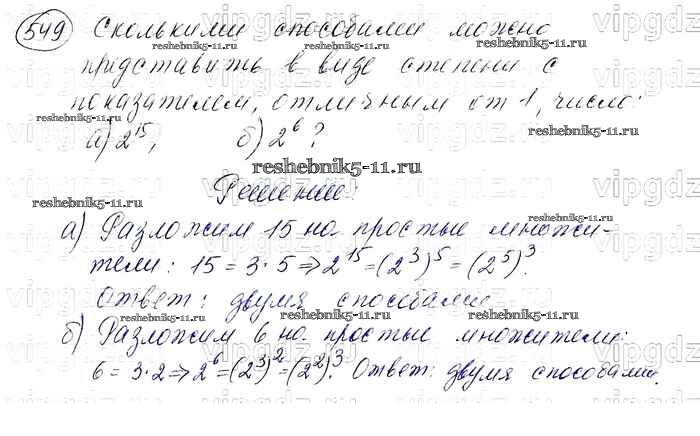 549 Сколькими способами можно
представить в виде степени с
показателем, отличным от 1, число:
а) 2¹⁵, б) 2⁶?
reshebnik5-11.ru
Решение:
а) Разложим 15 на простые множи-
тели: 15 = 3·5 ⇒ 2¹⁵ = (2³)⁵ = (2⁵)³.
Ответ: двумя способами
б) Разложим 6 на простые множители:
6 = 3·2 ⇒ 2⁶ = (2³)² = (2²)³. Ответ: двумя способами.